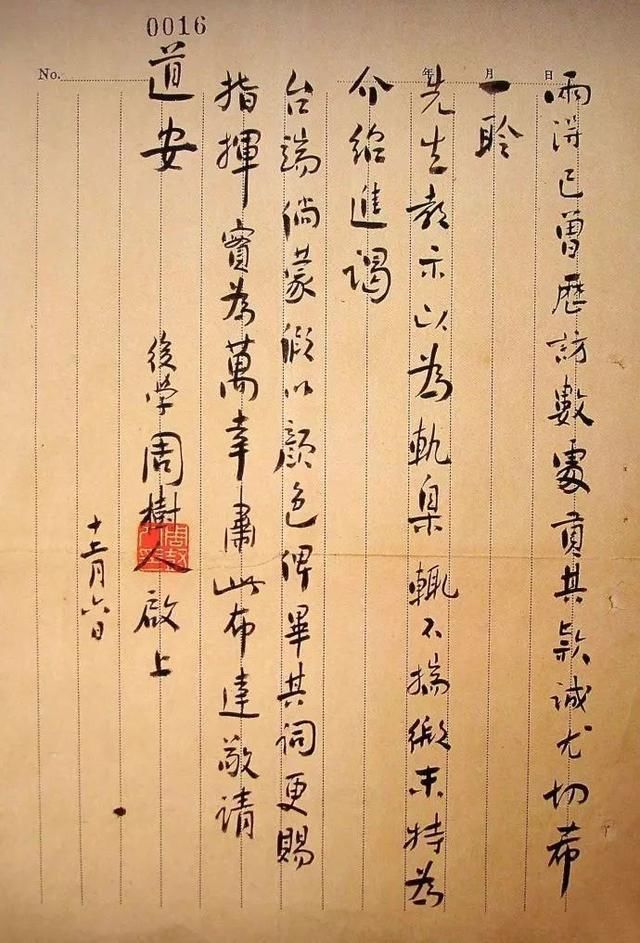 0016
No.
年 月 日
兩得已曾歷訪數處貢其款誠尤切希
一聆
先生教示以為軌臬輒不揣微末特為
介紹進謁
台端倘蒙假以顏色俾畢其詞更賜
指揮實為萬幸肅此布達敬請
道安
後學周樹人啟上
十二月六日